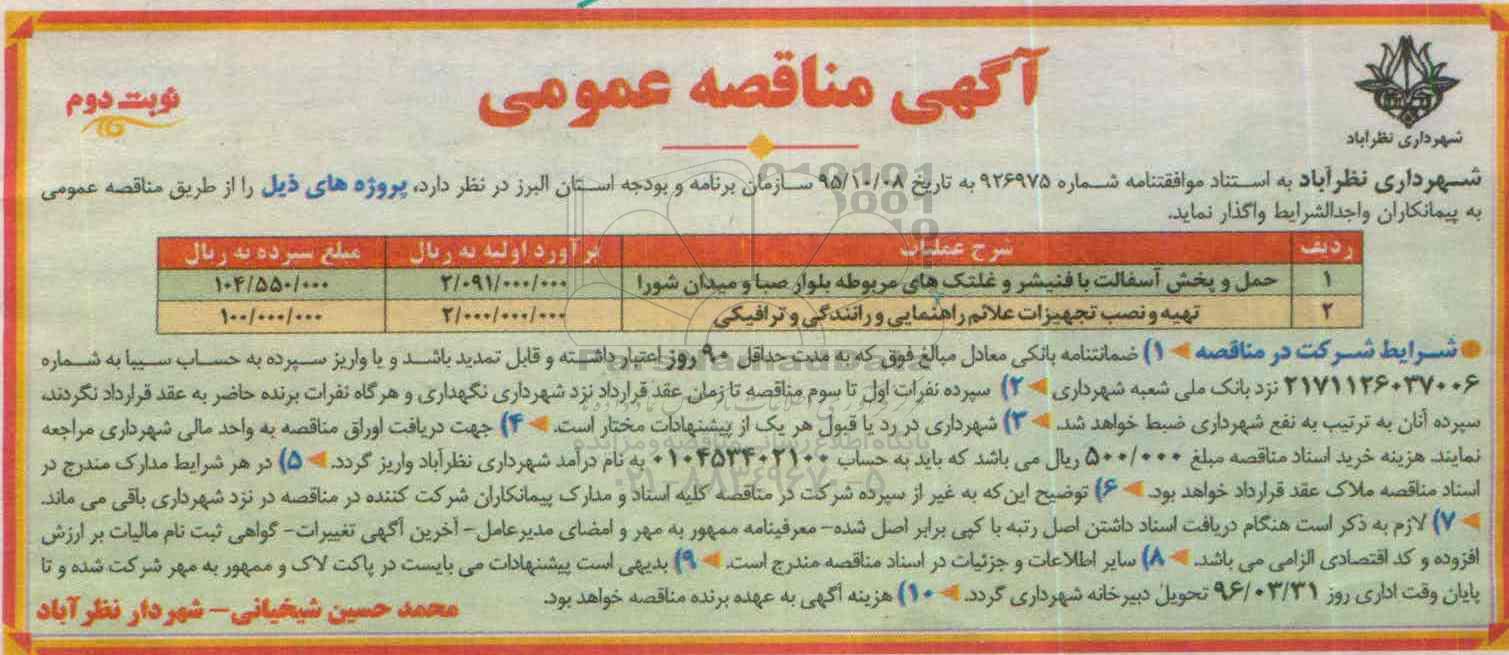 شهرداری نظرآباد
آگهی مناقصه عمومی
نوبت دوم
شهرداری نظرآباد به استناد موافقتنامه شماره ۹۲۶۹۷۵ به تاریخ ۹۵/۱۰/۰۸ سازمان برنامه و بودجه استان البرز در نظر دارد، پروژه های ذیل را از طریق مناقصه عمومی
به پیمانکاران واجدالشرایط واگذار نماید.
ردیف شرح عملیات برآورد اولیه به ریال مبلغ سپرده به ریال
۱ حمل و پخش آسفالت با فنیشر و غلتک های مربوطه بلوار صبا و میدان شورا ۲/۰۹۱/۰۰۰/۰۰۰ ۱۰۴/۵۵۰/۰۰۰
۲ تهیه و نصب تجهیزات علائم راهنمایی و رانندگی و ترافیکی ۲/۰۰۰/۰۰۰/۰۰۰ ۱۰۰/۰۰۰/۰۰۰
شرایط شرکت در مناقصه ۱) ضمانتنامه بانکی معادل مبالغ فوق که به مدت حداقل ۹۰ روز اعتبار داشته و قابل تمدید باشد و یا واریز سپرده به حساب سیبا به شماره
۲۱۷۱۱۲۶۰۳۷۰۰۶ نزد بانک ملی شعبه شهرداری ۲) سپرده نفرات اول تا سوم مناقصه تا زمان عقد قرارداد نزد شهرداری نگهداری و هرگاه نفرات برنده حاضر به عقد قرارداد نگردند،
سپرده آنان به ترتیب به نفع شهرداری ضبط خواهد شد. ۳) شهرداری در رد یا قبول هر یک از پیشنهادات مختار است. ۴) جهت دریافت اوراق مناقصه به واحد مالی شهرداری مراجعه
نمایند. هزینه خرید اسناد مناقصه مبلغ ۵۰۰/۰۰۰ ریال می باشد که باید به حساب ۰۱۰۴۵۳۴۰۲۱۰۰ به نام درآمد شهرداری نظرآباد واریز گردد. ۵) در هر شرایط مدارک مندرج در
اسناد مناقصه ملاک عقد قرارداد خواهد بود. ۶) توضیح این که به غیر از سپرده شرکت در مناقصه کلیه اسناد و مدارک پیمانکاران شرکت کننده در مناقصه در نزد شهرداری باقی می ماند.
۷) لازم به ذکر است هنگام دریافت اسناد داشتن اصل رتبه با کپی برابر اصل شده- معرفینامه ممهور به مهر و امضای مدیرعامل- آخرین آگهی تغییرات- گواهی ثبت نام مالیات بر ارزش
افزوده و کد اقتصادی الزامی می باشد. ۸) سایر اطلاعات و جزئیات در اسناد مناقصه مندرج است. ۹) بدیهی است پیشنهادات می بایست در پاکت لاک و ممهور به مهر شرکت شده و تا
پایان وقت اداری روز ۹۶/۰۳/۳۱ تحویل دبیرخانه شهرداری گردد. ۱۰) هزینه آگهی به عهده برنده مناقصه خواهد بود.
محمد حسین شیخیانی- شهردار نظرآباد
ParsNamadData
پایگاه اطلاع رسانی مناقصه و مزایده
۰۲۱-۸۸۳۴۹۶۷۰-۵